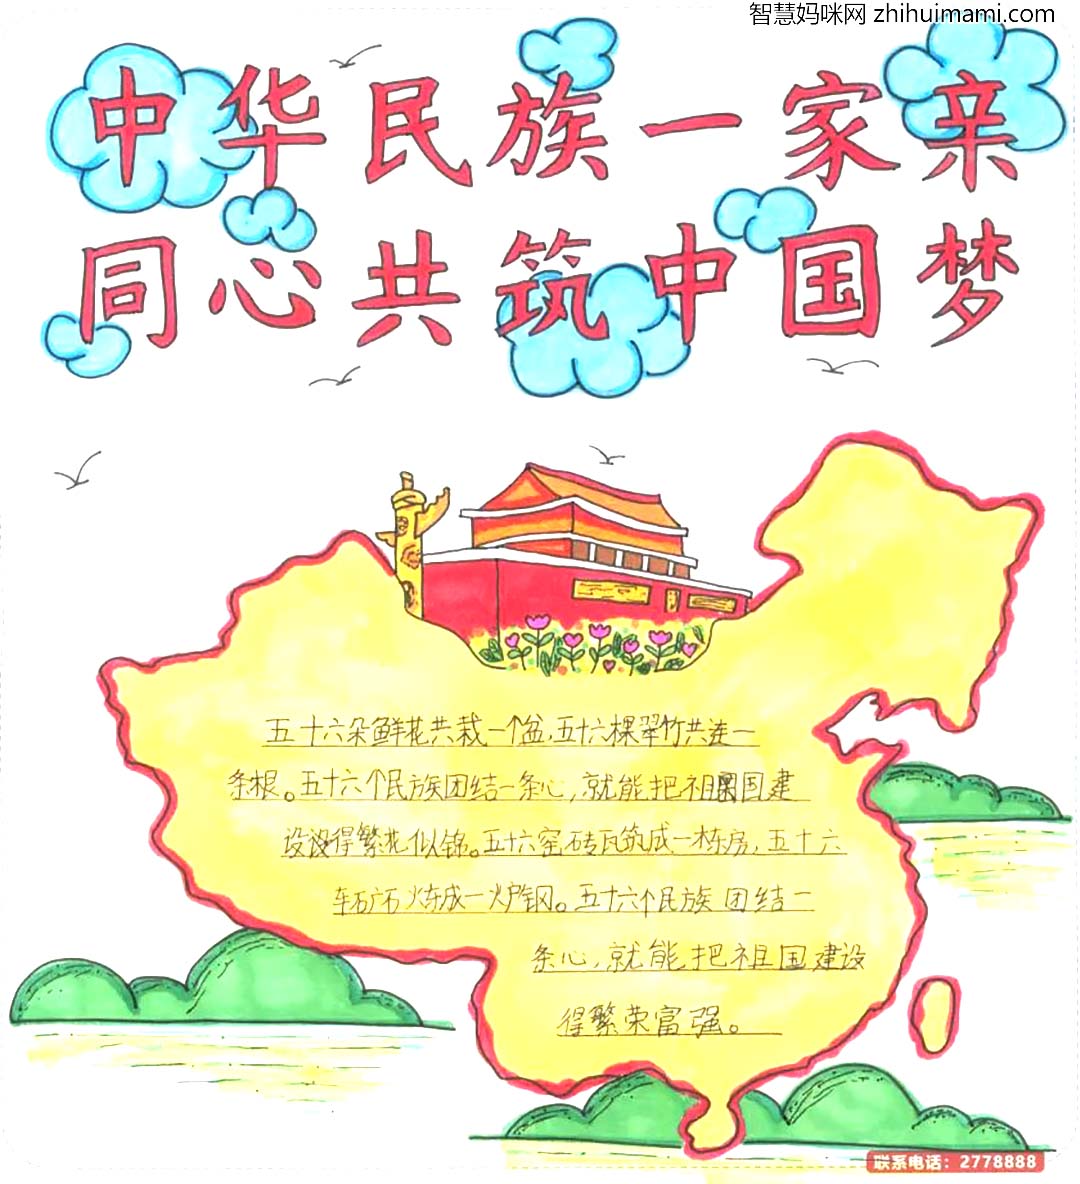 智慧妈咪网 zhihuimami.com
中华民族一家亲
同心共筑中国梦
五十六朵鲜花共栽一个盆,五十六棵翠竹共连一
条根。五十六个民族团结一条心,就能把祖国建
设得繁花似锦。五十六窑砖瓦筑成一栋房,五十六
车矿石炼成一炉钢。五十六个民族团结一
条心,就能把祖国建设
得繁荣富强。
联系电话:2778888